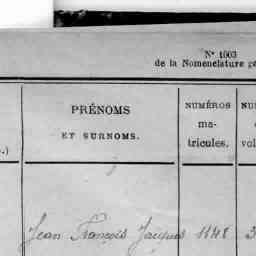 N° 1603
de la Nomenclature gé
PRÉNOMS
ET SURNOMS.
NUMÉROS
ma-
tricules.
NU
vol
.)
Jean François Jacques 1148 3